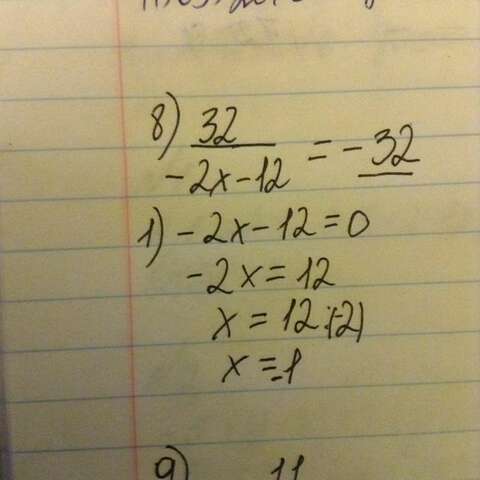 8) 32
-2x-12 = -32
1) -2x-12=0
-2x=12
x=12:(-2)
x=-1
9) 11